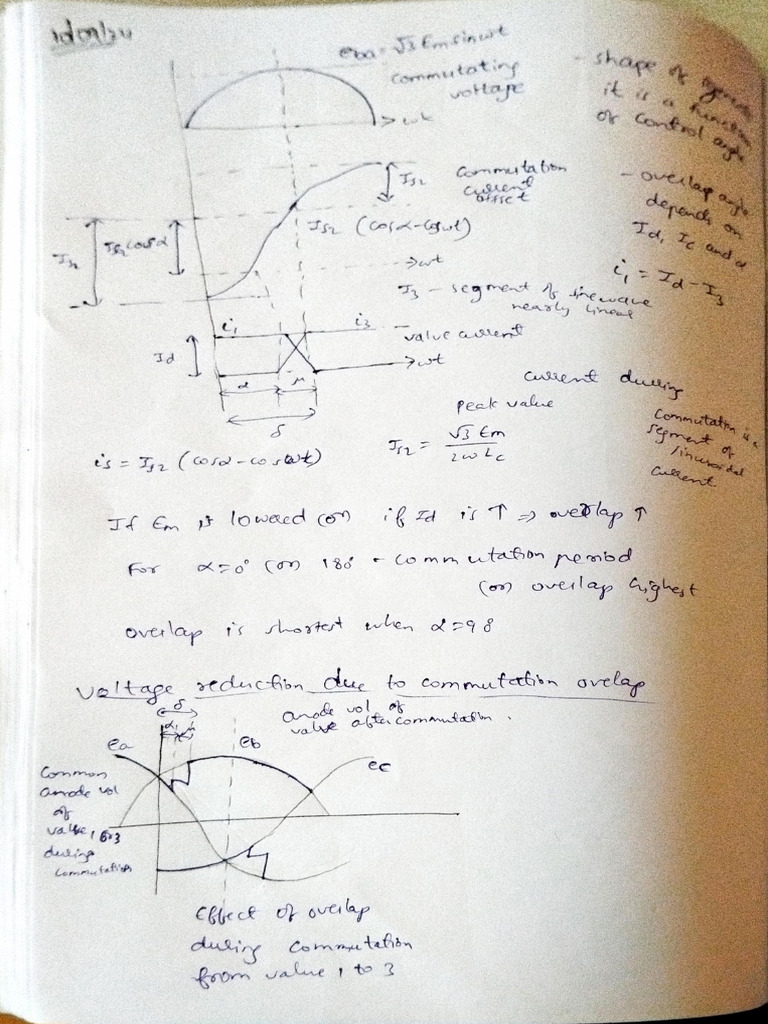 eba = √3 Em sin ωt
commutating
voltage
→ ωt
- shape of
it is a function
of control angle
Is2
commutation
current
offset
- overlap angle
depends on
Id, Ic and α
Is2
Is2 cosα
Is2 (cosα - cosωt)
→ ωt
i1 = Id - I3
I3 - segment of sinewave
nearly linear
i1
i3
- value current
Id
→ ωt
α
μ
δ
current during
commutation is a
segment of
sinusoidal
current
peak value
is = Is2 (cosα - cosωt)
Is2 = √3 Em / 2ω Lc
If Em is lowered (or) if Id is ↑ ⇒ overlap ↑
For α=0° (or) 180° - commutation period
(or) overlap highest
overlap is shortest when α=90
Voltage reduction due to commutation ovelap
δ
α
μ
anode vol of
valve after commutation.
ea
eb
ec
Common
anode vol
of
valve 1 & 3
during
commutation
Effect of overlap
during commutation
from value 1 to 3